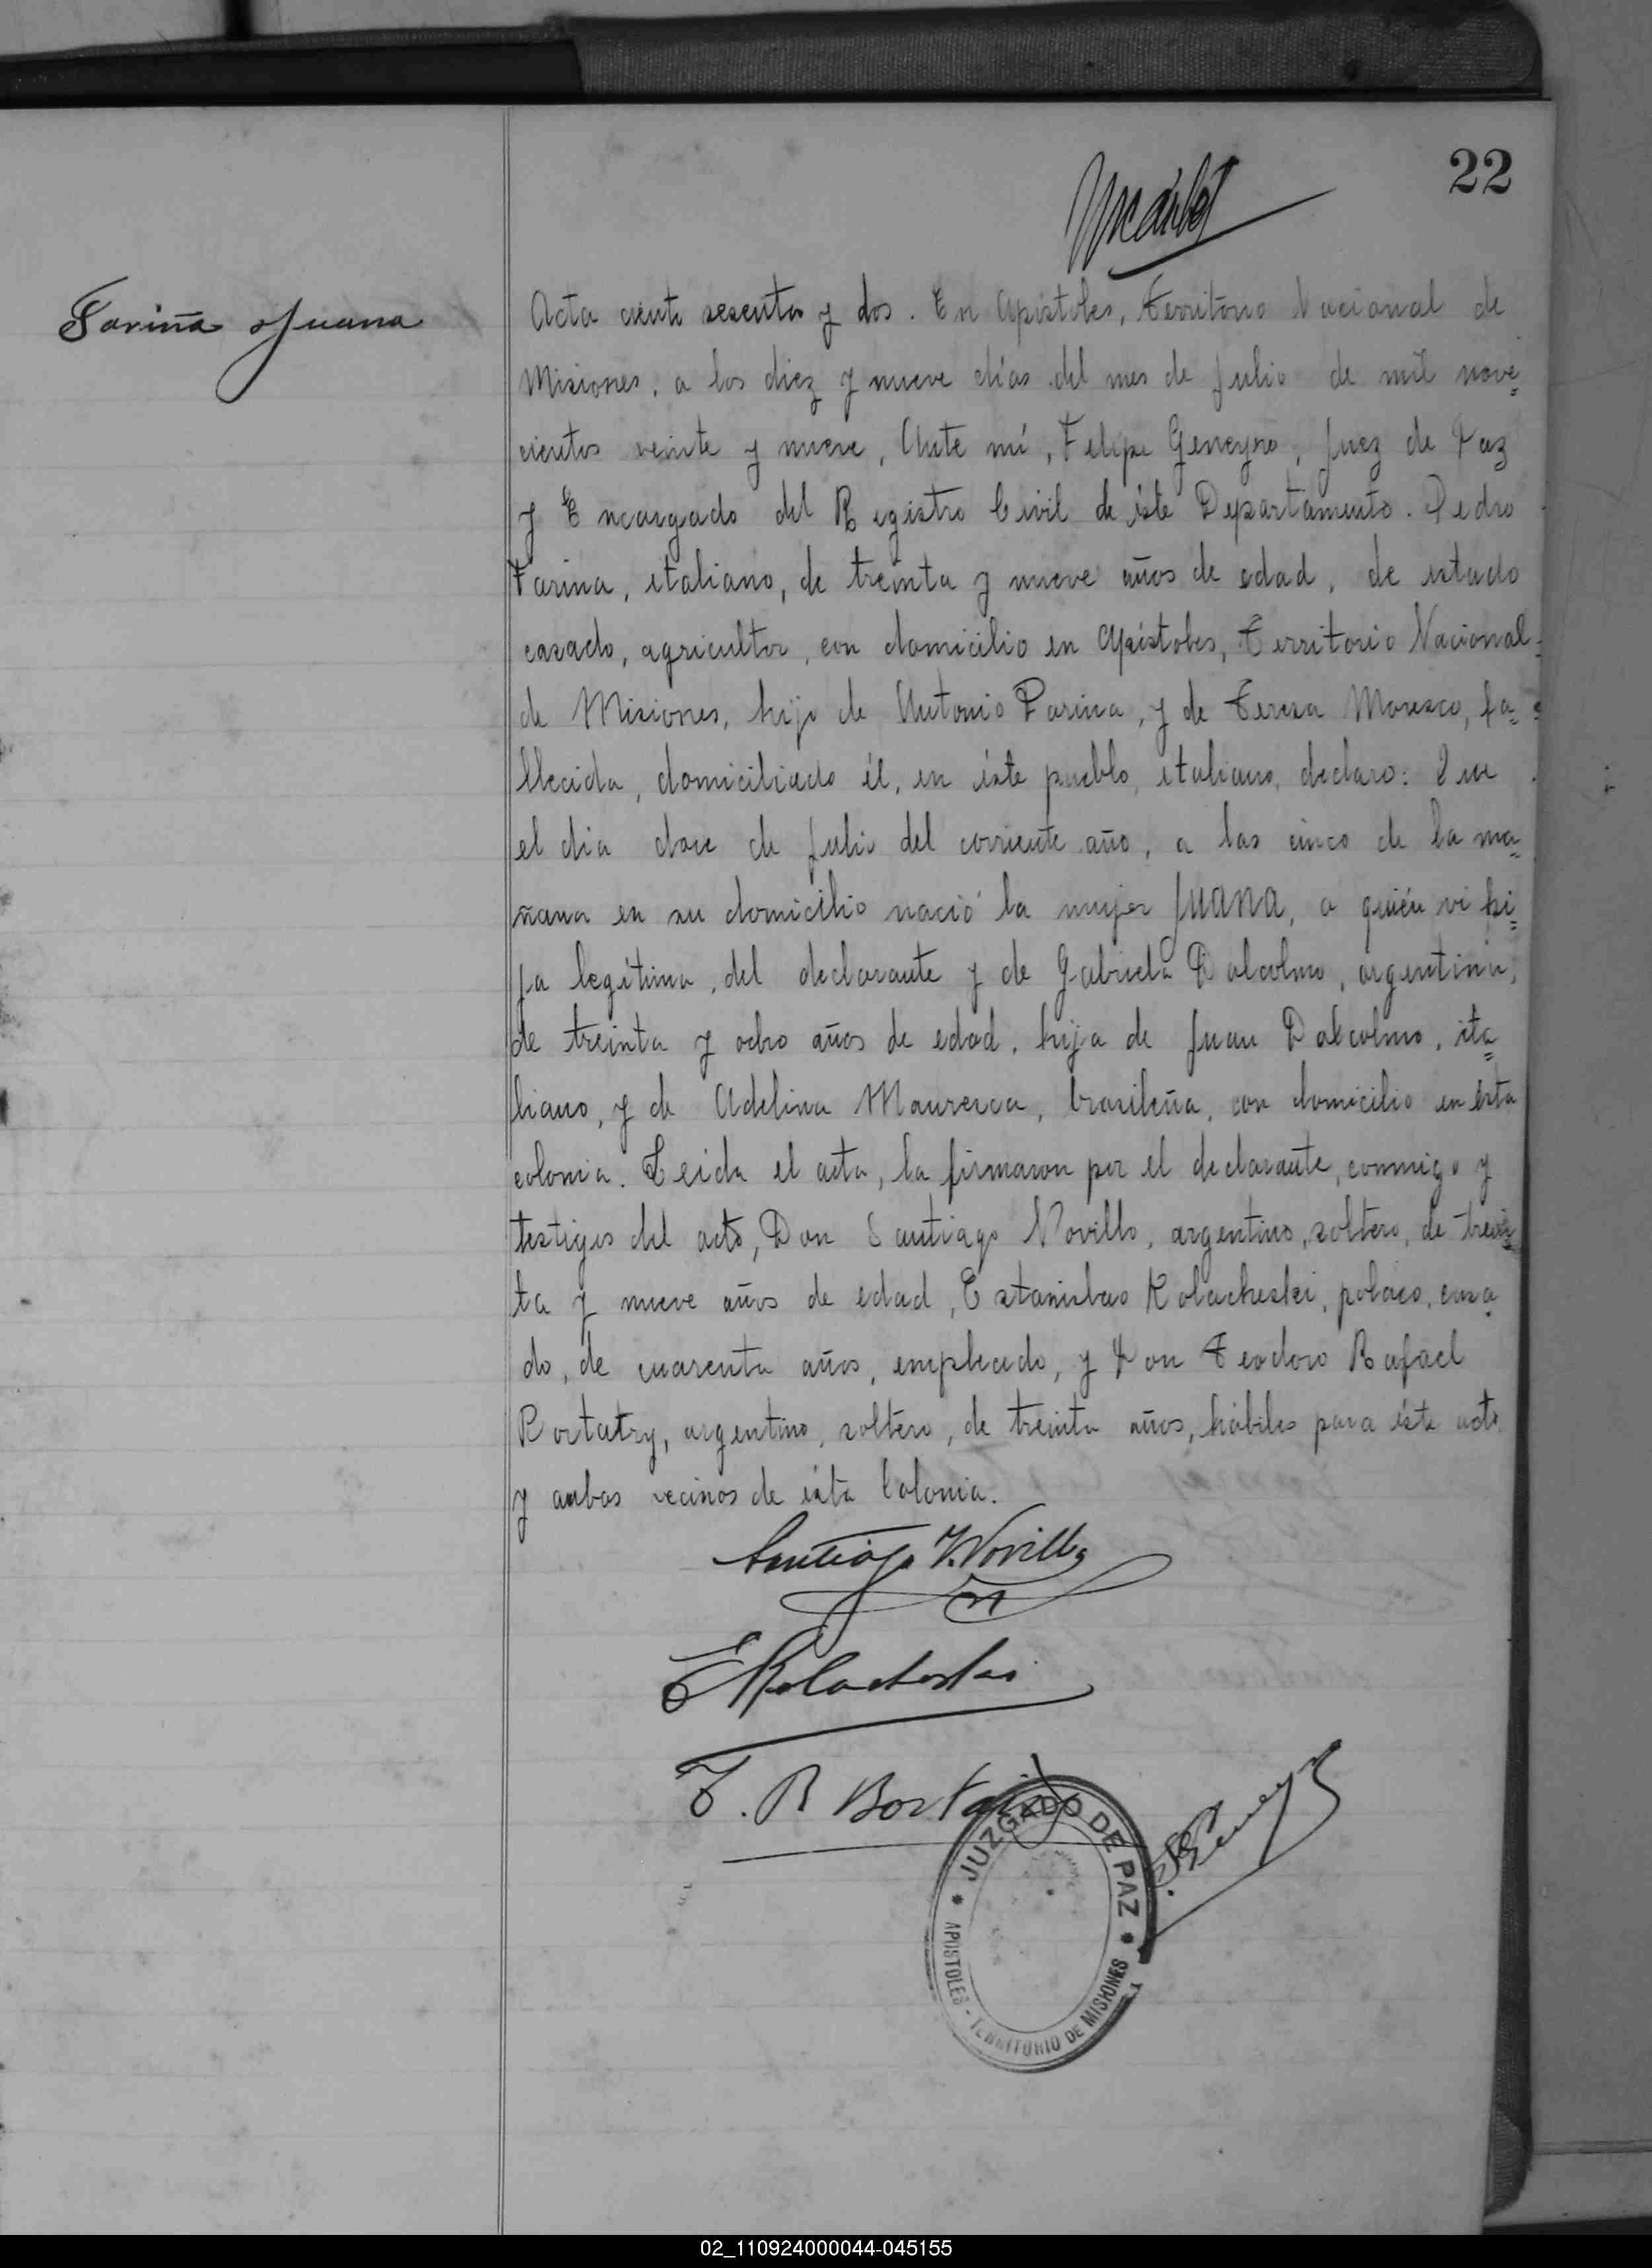 22
Fariña Juana
Acta ciento sesenta y dos. En Apóstoles, Territorio Nacional de
Misiones, a los diez y nueve días del mes de Julio de mil nove=
cientos veinte y nueve, Ante mí, Felipe Geneyro, Juez de Paz
y Encargado del Registro Civil de éste Departamento. Pedro
Farina, italiano, de treinta y nueve años de edad, de estado
casado, agricultor, con domicilio en Apóstoles, Territorio Nacional=
de Misiones, hijo de Antonio Farina, y de Teresa Moresco, fa=
llecida, domiciliado él, en éste pueblo, italiano, declaro: Que
el dia doce de Julio del corriente año, a las cinco de la ma=
ñana en su domicilio nació la mujer JUANA, a quién vi hi=
ja legítima, del declarante y de Gabriela Dalcolmo, argentina,
de treinta y ocho años de edad, hija de Juan Dalcolmo, ita=
liano, y de Adelina Mauresca, brasileña, con domicilio en ésta
colonia. Leida el acta, la firmaron por el declarante, conmigo y
testigos del acto, Don Santiago Novillo, argentino, soltero, de trein=
ta y nueve años de edad, Estanislao Kolacheski, polaco, casa=
do, de cuarenta años, empleado, y Don Teodoro Rafael
Bortatry, argentino, soltero, de treinta años, hábiles para éste acto
y ambos vecinos de ésta Colonia.
Santiago N. Novillo
E Kolacheski
T. R Borta
JUZGADO DE PAZ
APOSTOLES - TERRITORIO DE MISIONES
02_110924000044-045155